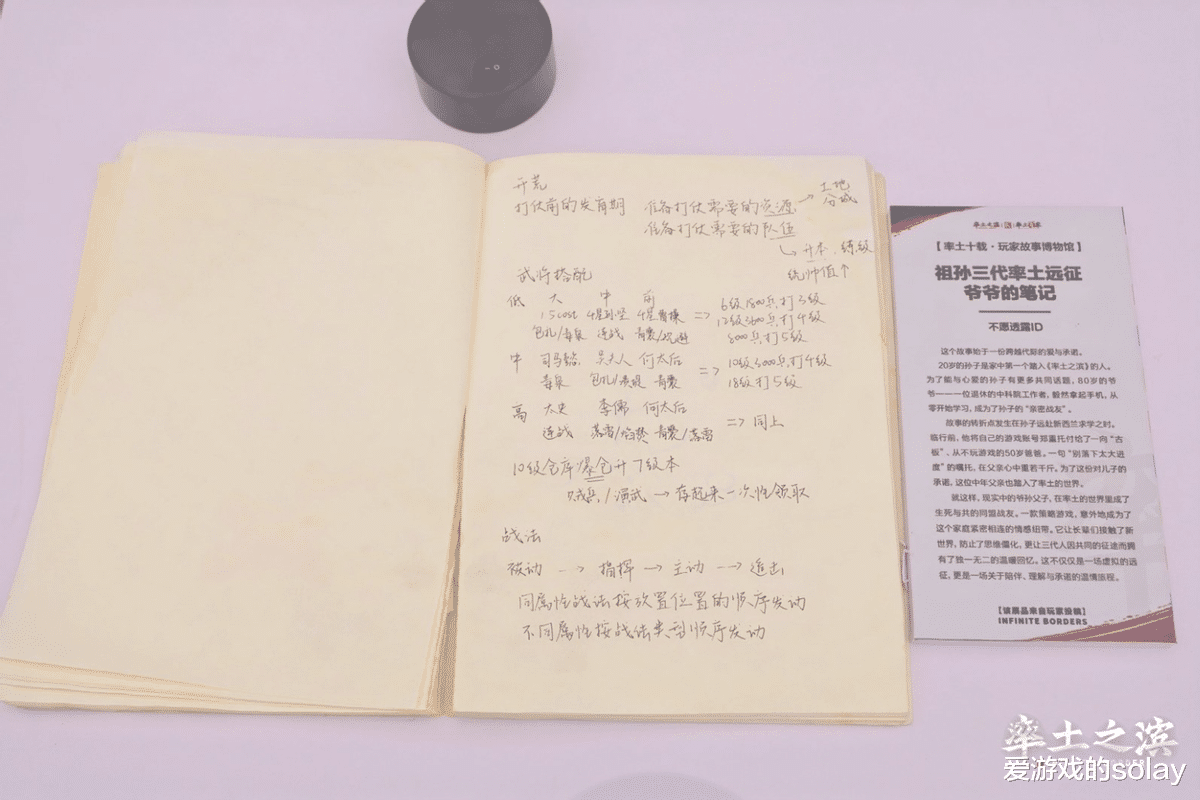 开荒
打仗前的发育期 准备打仗需要的资源 → 土地 分城
准备打仗需要的队伍
↳ 升本、练级
统帅值↑
武将搭配
低 大 中 前
1.5cost 4星孙坚 4星曹操 =>
连战
6级1800兵打3级
12级3600兵打4级
8000兵打5级
中 司马懿 吴夫人 何太后 =>
10级5000兵打4级
18级打5级
高 太史 李儒 何太后
连战
=> 同上
10级仓库爆仓升7级本
贼兵/演武 → 存起来一次性领取
战法
被动 → 指挥 → 主动 → 追击
同属性战法按放置位置的顺序发动
不同属性按战法类型顺序发动
【率土十载·玩家故事博物馆】
祖孙三代率土远征
爷爷的笔记
不愿透露ID
这个故事始于一份跨越代际的爱与承诺。
20岁的孙子是家中第一个踏入《率土之滨》的人。
为了能与心爱的孙子有更多共同话题，80岁的爷
爷——一位退休的中科院工作者，毅然拿起手机，从
零开始学习，成为了孙子的“亲密战友”。
故事的转折点发生在孙子远赴新西兰求学之时。
临行前，他将自己的游戏账号郑重托付给了一向“古
板”、从不玩游戏的50岁爸爸。一句“别落下太大进
度”的嘱托，在父亲心中重若千斤。为了这份对儿子的
承诺，这位中年父亲也踏入了率土的世界。
就这样，现实中的爷孙父子，在率土的世界里成了
生死与共的同盟战友。一款策略游戏，意外地成为了
这个家庭紧密相连的情感纽带。它让长辈们接触了新
世界，防止了思维僵化，更让三代人因共同的征途而拥
有了独一无二的温暖回忆。这不仅仅是一场虚拟的远
征，更是一场关于陪伴、理解与承诺的温情旅程。
【该展品来自玩家投稿】
INFINITE BORDERS
率土之滨
爱游戏的solay